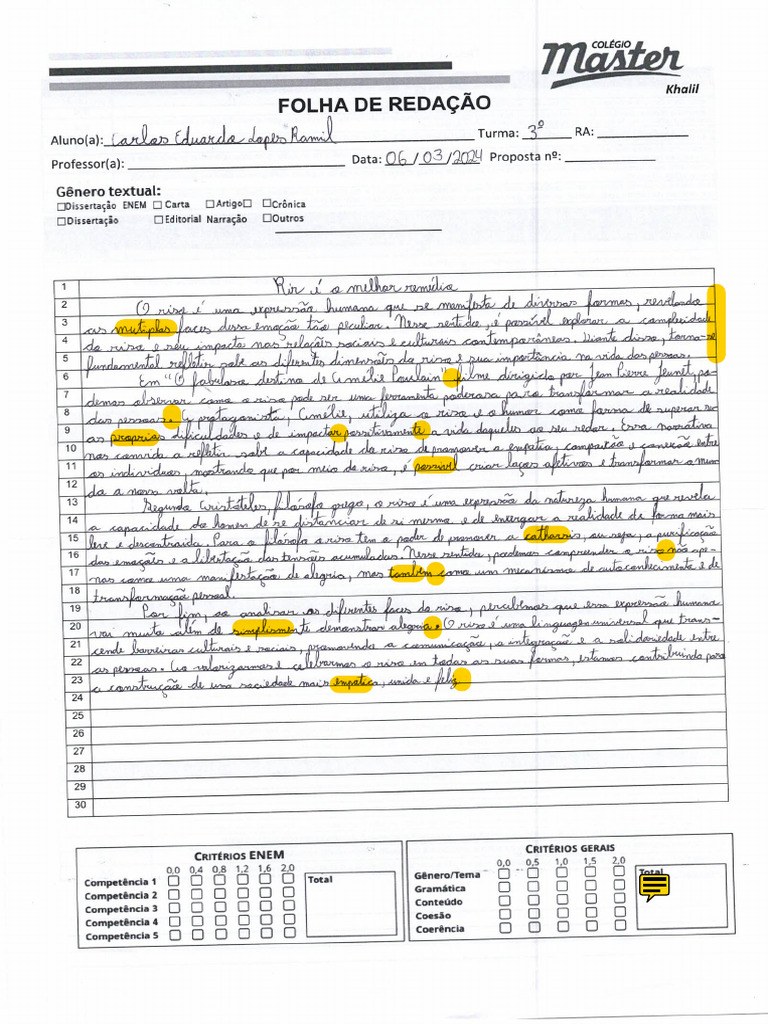 COLÉGIO
Master
Khalil
FOLHA DE REDAÇÃO
Aluno(a): Carlos Eduardo Lopes Ramil Turma: 3º RA:
Professor(a): Data: 06/03/2024 Proposta nº:
Gênero textual:
☐Dissertação ENEM ☐ Carta ☐Artigo☐ ☐Crônica
☐Dissertação ☐Editorial Narração ☐Outros
1 Rir é o melhor remédio
2 O riso é uma expressão humana que se manifesta de diversas formas, revelando
3 as mutiplas faces dessa emoção tão peculiar. Nesse sentido, é possível explorar a complexidade
4 do riso e seu impacto nas relações sociais e culturais contemporâneas. Diante disso, torna-se
5 fundamental refletir sobre as diferentes dimensões do riso e sua importância na vida das pessoas.
6 Em "O fabuloso destino de Amélie Poulain" filme dirigido por Jean Pierre Jeunet, po-
7 demos observar como o riso pode ser uma ferramenta poderosa para transformar a realidade
8 das pessoas. A protagonista, Amélie, utiliza o riso e o humor como forma de superar su
9 as proprias dificuldades e de impactar possitivamente a vida daqueles ao seu redor. Essa narrativa
10 nos convida a refletir sobre a capacidade do riso de promover a empatia, compaixão e conexão entre
11 os indivíduos, mostrando que por meio do riso, é possivel criar laços afetivos e transformar o mun
12 do a nossa volta.
13 Segundo Aristóteles, filósofo grego, o riso é uma expressão da natureza humana que revela
14 a capacidade do homem de se distanciar de si mesmo e de enxergar a realidade de forma mais
15 leve e descontraída. Para o filósofo o riso tem o poder de promover a catharsis, ou seja, a purificação
16 das emoções e a libertação das tensões acumuladas. Nesse sentido, podemos compreender o riso não ape-
17 nas como uma manifestação de alegria, mas também como um mecanismo de autoconhecimento e de
18 transformação pessoal.
19 Por fim, ao analisar as diferentes faces do riso, percebemos que essa expressão humana
20 vai muito além de simplismente demonstrar alegria. O riso é uma linguagem universal que trans-
21 cende barreiras culturais e sociais, promovendo a comunicação, a integração e a solidariedade entre
22 as pessoas. Ao valorizarmos e celebrarmos o riso em todas as suas formas, estamos contribuindo para
23 a construção de uma sociedade mais empatica, unida e feliz
24
25
26
27
28
29
30
CRITÉRIOS ENEM
0,0 0,4 0,8 1,2 1,6 2,0
Total
Competência 1
Competência 2
Competência 3
Competência 4
Competência 5
CRITÉRIOS GERAIS
0,0 0,5 1,0 1,5 2,0
Total
Gênero/Tema
Gramática
Conteúdo
Coesão
Coerência